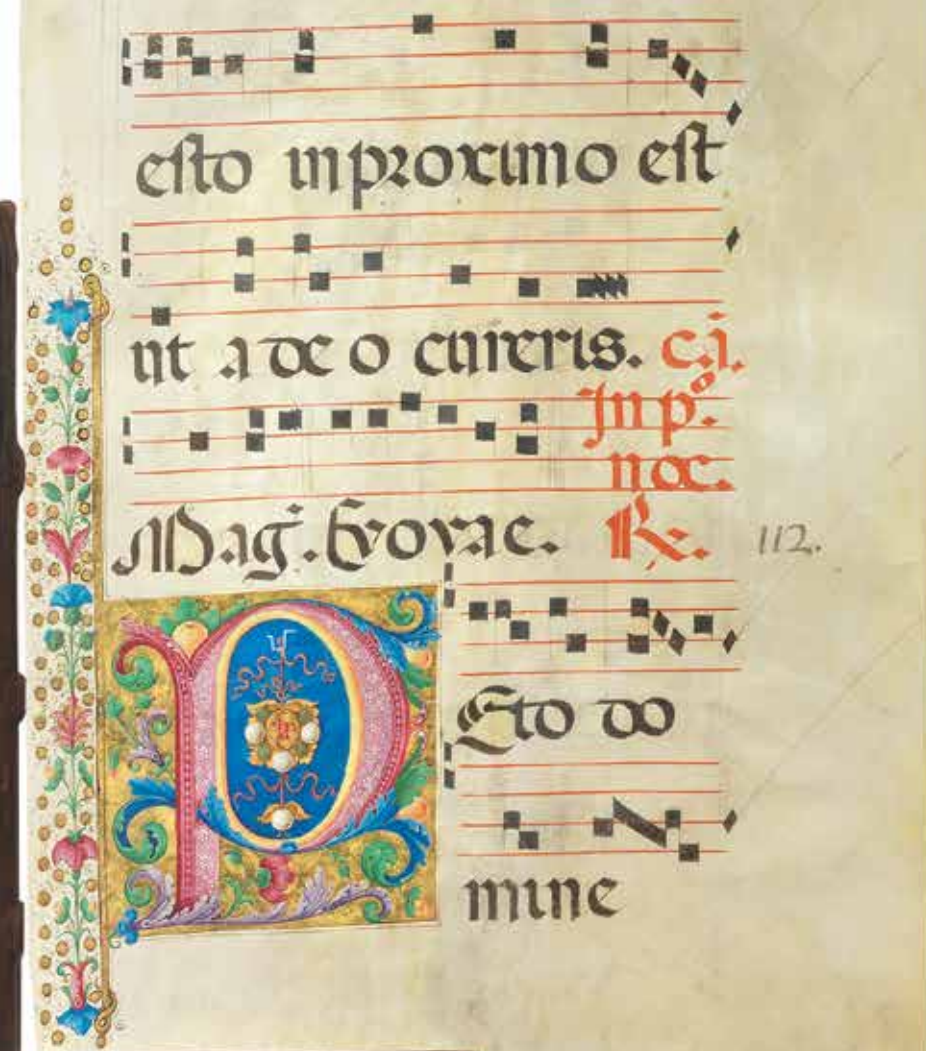 esto in proximo est
ut a de o cureris. c.j.
In pº.
noc.
Mag. Evovae. R. 112.
PEto do
mine